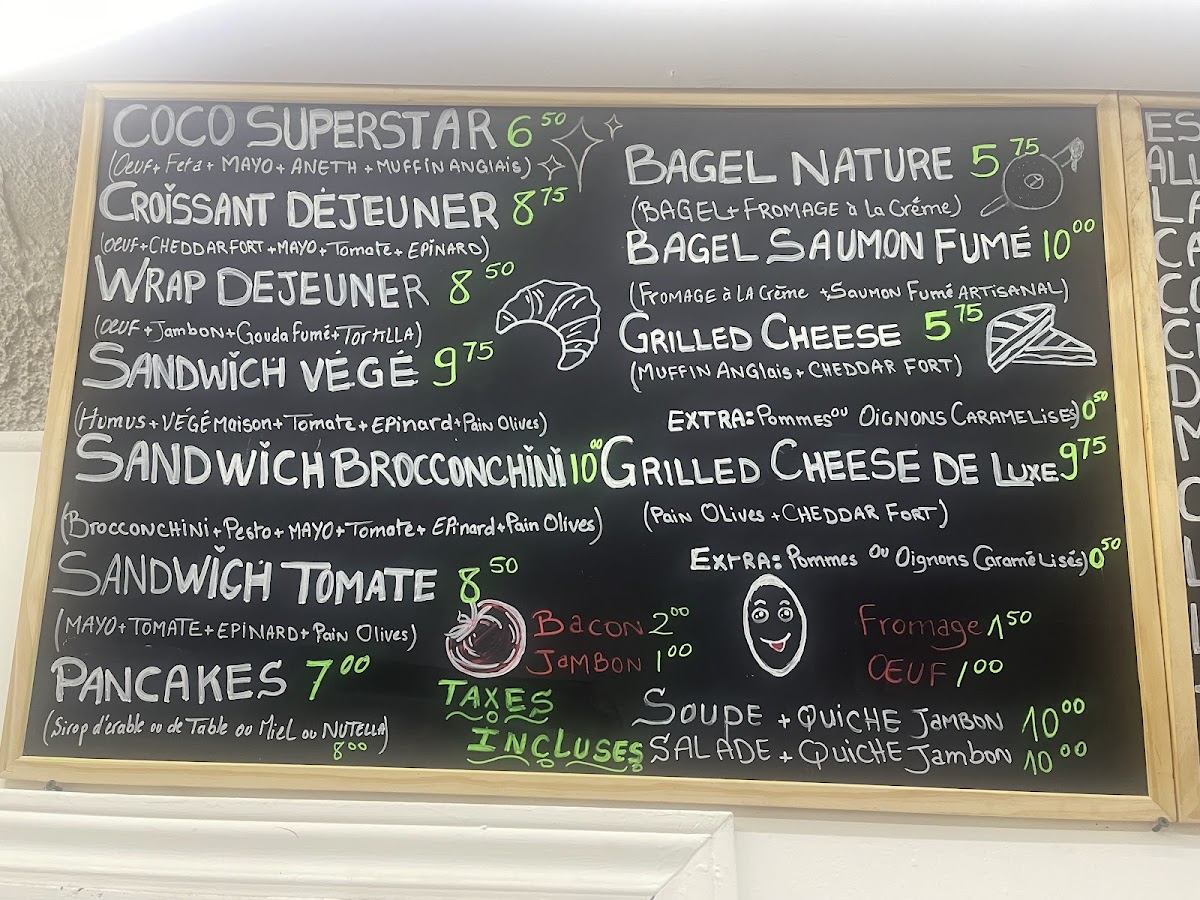 COCO SUPERSTAR 6 50
(Oeuf + Feta + MAYO + ANETH + MUFFIN ANGLAIS)
CROISSANT DÉJEUNER 8 75
(OEUF + CHEDDAR FORT + MAYO + Tomate + EPINARD)
WRAP DEJEUNER 8 50
(OEUF + Jambon + Gouda Fumé + TORTILLA)
SANDWICH VÉGÉ 9 75
(Humus + VÉGÉ Maison + Tomate + EPinard + Pain Olives)
SANDWICH BROCCONCHINI 10 00
(BROCCONCHINI + Pesto + MAYO + Tomate + EPinard + Pain Olives)
SANDWICH TOMATE 8 50
(MAYO + TOMATE + EPINARD + Pain Olives)
PANCAKES 7 00
(Sirop d'érable ou de Table ou Miel ou NUTELLA)
8 00
BACON 2 00
JAMBON 1 00
TAXES
INCLUSES
BAGEL NATURE 5 75
(BAGEL + FROMAGE à la Créme)
BAGEL SAUMON FUMÉ 10 00
(FROMAGE à LA Crème + SAUMON Fumé ARTISANAL)
GRILLED CHEESE 5 75
(MUFFIN ANGlais + CHEDDAR FORT)
EXTRA: Pommes ou OIGNONS CARAMELISES) 0 50
GRILLED CHEESE DE LUXE 9 75
(Pain OLives + CHEDDAR FORT)
EXTRA: Pommes ou Oignons Caramélisés) 0 50
Fromage 1 50
OEUF 1 00
SOUPE + QUICHE JAMBON 10 00
SALADE + QUICHE Jambon 10 00
ES
ALL
LA